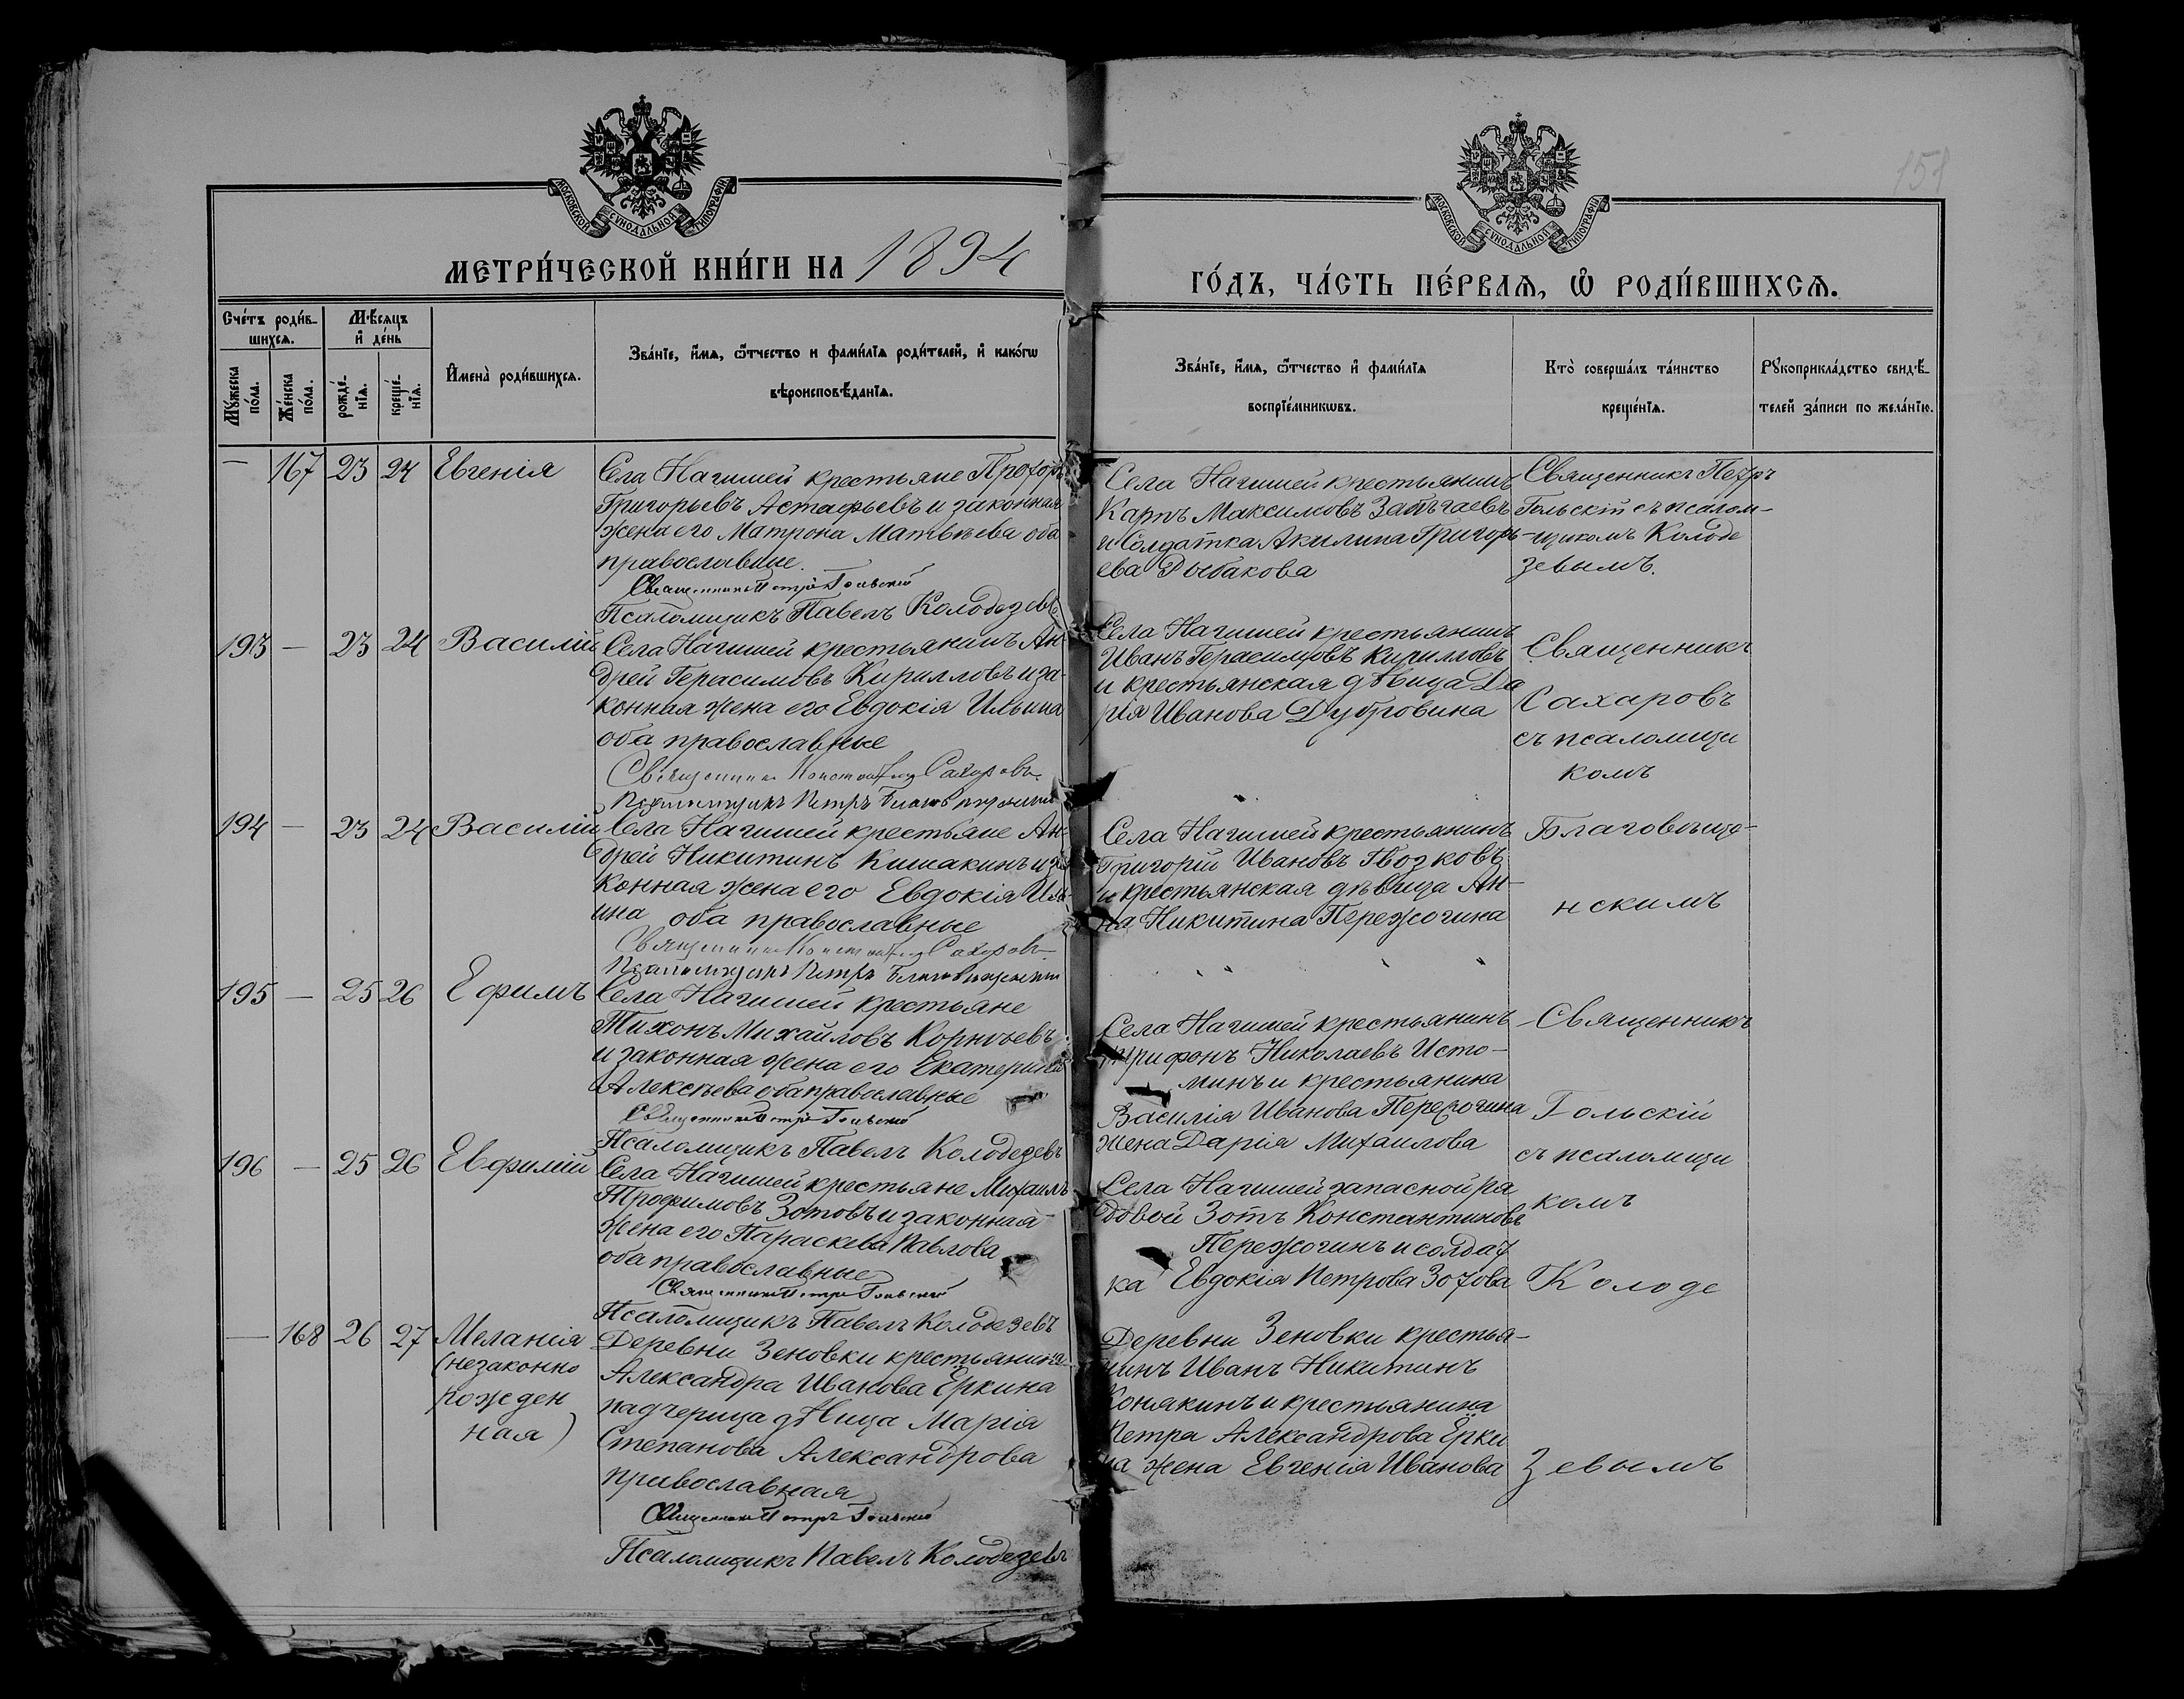 151
МОСКОВСКОЙ СѴНОДАЛЬНОЙ ТИПОГРАФІИ
МОСКОВСКОЙ СѴНОДАЛЬНОЙ ТИПОГРАФІИ
МЕТРИ́ЧЕСКОЙ КНИ́ГИ НА 1894
ГО́ДЪ, ЧА́СТЬ ПЕ́РВАѦ, Ѡ҆ РОДИ́ВШИХСѦ.
Сче́тъ роди́в-
шихсѧ.
Мѣ́сѧцъ
и҆ де́нь
Му́жеска
по́ла.
Же́нска
по́ла.
рожде́-
нїѧ.
креще́-
нїѧ.
И҆мена̀ роди́вшихсѧ.
Зва́нїе, и҆́мѧ, ѻ҆́тчество и фами́лїѧ роди́телей, и҆ како́гѡ
вѣроисповѣ́данїѧ.
Зва́нїе, и҆́мѧ, ѻ҆́тчество и҆ фами́лїѧ
воспрїе́мникѡвъ.
Кто̀ соверша́лъ та́инство
креще́нїѧ.
Рꙋкоприкла́дство свидѣ́-
телей за́писи по жела́нїю.
— 167 23 24 Евгенія
Села Нагишей крестьяне Прохоръ
Григорьевъ Астафьевъ и законная
жена его Матрона Матвѣева оба
православные.
Священникъ Петръ Гольскій
Псаломщикъ Павелъ Колодезевъ
Села Нагишей крестьянинъ
Карпъ Максимовъ
и Солдатка Акилина Григорь-
ева Рыбакова
Священникъ Петръ
Гольскій съ псалом-
щикомъ Колоде
зевымъ.
193 — 23 24 Василій
Села Нагишей крестьянинъ Ан-
дрей Герасимовъ Кирилловъ и за-
конная жена его Евдокія Ильина
оба православные
Священникъ Константинъ Сахаровъ
Псаломщикъ Петръ Благовѣщенскій
Села Нагишей крестьянинъ
Иванъ Герасимовъ Кирилловъ
и крестьянская дѣвица Да
рія Иванова Дубровина
Священникъ
Сахаровъ
съ псаломщи
комъ
194 — 23 24 Василій
Села Нагишей крестьяне Ан-
дрей Никитинъ Кишакинъ и за
конная жена его Евдокія Иль-
ина оба православные
Священникъ Константинъ Сахаровъ
Псаломщикъ Петръ Благовѣщенскій
Села Нагишей крестьянинъ
Григорій Ивановъ Гвозковъ
и крестьянская дѣвица Ан-
на Никитина Пережогина
Благовѣще-
нскимъ
195 — 25 26 Ефимъ
Села Нагишей крестьяне
Тихонъ Михайловъ Корнѣевъ
и законная жена его Екатерина
Алексѣева оба православные
Священникъ Петръ Гольскій
Псаломщикъ Павелъ Колодезевъ
Села Нагишей крестьянинъ
Трифонъ Николаевъ Исто-
минъ и крестьянина
Василія Иванова Пережогина
жена Дарія Михаилова
Священникъ
Гольскій
съ псаломщи
196 — 25 26 Евфимій
Села Нагишей крестьяне Михаилъ
Трофимовъ Зотовъ и законная
жена его Параскева Павлова
оба православные
Священникъ Петръ Гольскій
Псаломщикъ Павелъ Колодезевъ
Села Нагишей запасной ря
довой Зотъ Константиновъ
Пережогинъ и солдат
ка Евдокія Петрова Зотова
комъ
Колоде
— 168 26 27 Меланія
(незаконно
рожден
ная)
Деревни Зеновки крестьянина
Александра Иванова Ёркина
падчерица дѣвица Марія
Степанова Александрова
православная
Священникъ Петръ Гольскій
Псаломщикъ Павелъ Колодезевъ
Деревни Зеновки крестья-
нинъ Иванъ Никитинъ
Конякинъ и крестьянина
Петра Александрова Ёрки
на жена Евгенія Иванова
зевымъ